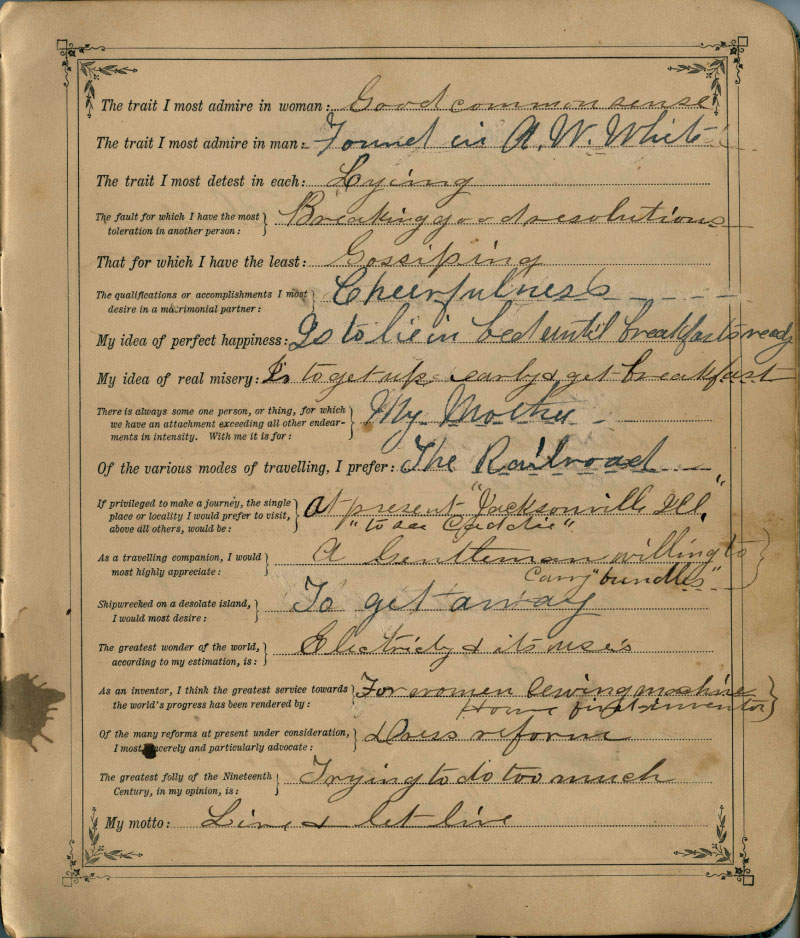 The trait I most admire in woman: Good common sense
The trait I most admire in man: Found in A. W. White
The trait I most detest in each: Lying
The fault for which I have the most
toleration in another person: } Breaking good resolutions
That for which I have the least: Gossiping
The qualifications or accomplishments I most
desire in a matrimonial partner: } Cheerfulness
My idea of perfect happiness: Is to lie in bed until breakfast is ready
My idea of real misery: Is to get up early & get breakfast
There is always some one person, or thing, for which
we have an attachment exceeding all other endear-
ments in intensity. With me it is for: } My Mother
Of the various modes of travelling, I prefer: The Railroad
If privileged to make a journey, the single
place or locality I would prefer to visit,
above all others, would be: } At present "Jacksonville Ill."
"to see
As a travelling companion, I would
most highly appreciate: } A Gentleman willing to
carry "bundles"
Shipwrecked on a desolate island,
I would most desire: } To get away
The greatest wonder of the world,
according to my estimation, is: } Electricity & its uses
As an inventor, I think the greatest service towards
the world's progress has been rendered by: } For women Sewing machine
Howe first inventor
Of the many reforms at present under consideration,
I most sincerely and particularly advocate: } Dress reform
The greatest folly of the Nineteenth
Century, in my opinion, is: } Trying to do too much
My motto: Live & let live